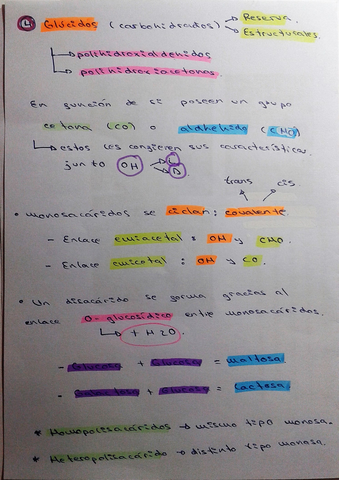 Glúcidos (carbohidratos) → Reserva.
→ Estructurales.
→ polihidroxialdehidos
→ polihidroxiacetonas.
En función de si poseen un grupo
cetona (CO) o aldhehído (CHO)
→ estos les confieren sus características.
junto OH → L
→ D
trans cis
• monosacáridos se ciclan: covalente.
- Enlace emiacetal: OH y CHO.
- Enlace emicetal: OH y CO.
• Un disacárido se forma gracias al
enlace O-glucosídico entre monosacáridos.
→ + H2O.
- Glucosa + Glucosa = maltosa
- Galactosa + Glucosa = Lactosa.
* Homopolisacáridos → mismo tipo monosa.
* Heteropolisacárido → distinto tipo monosa.